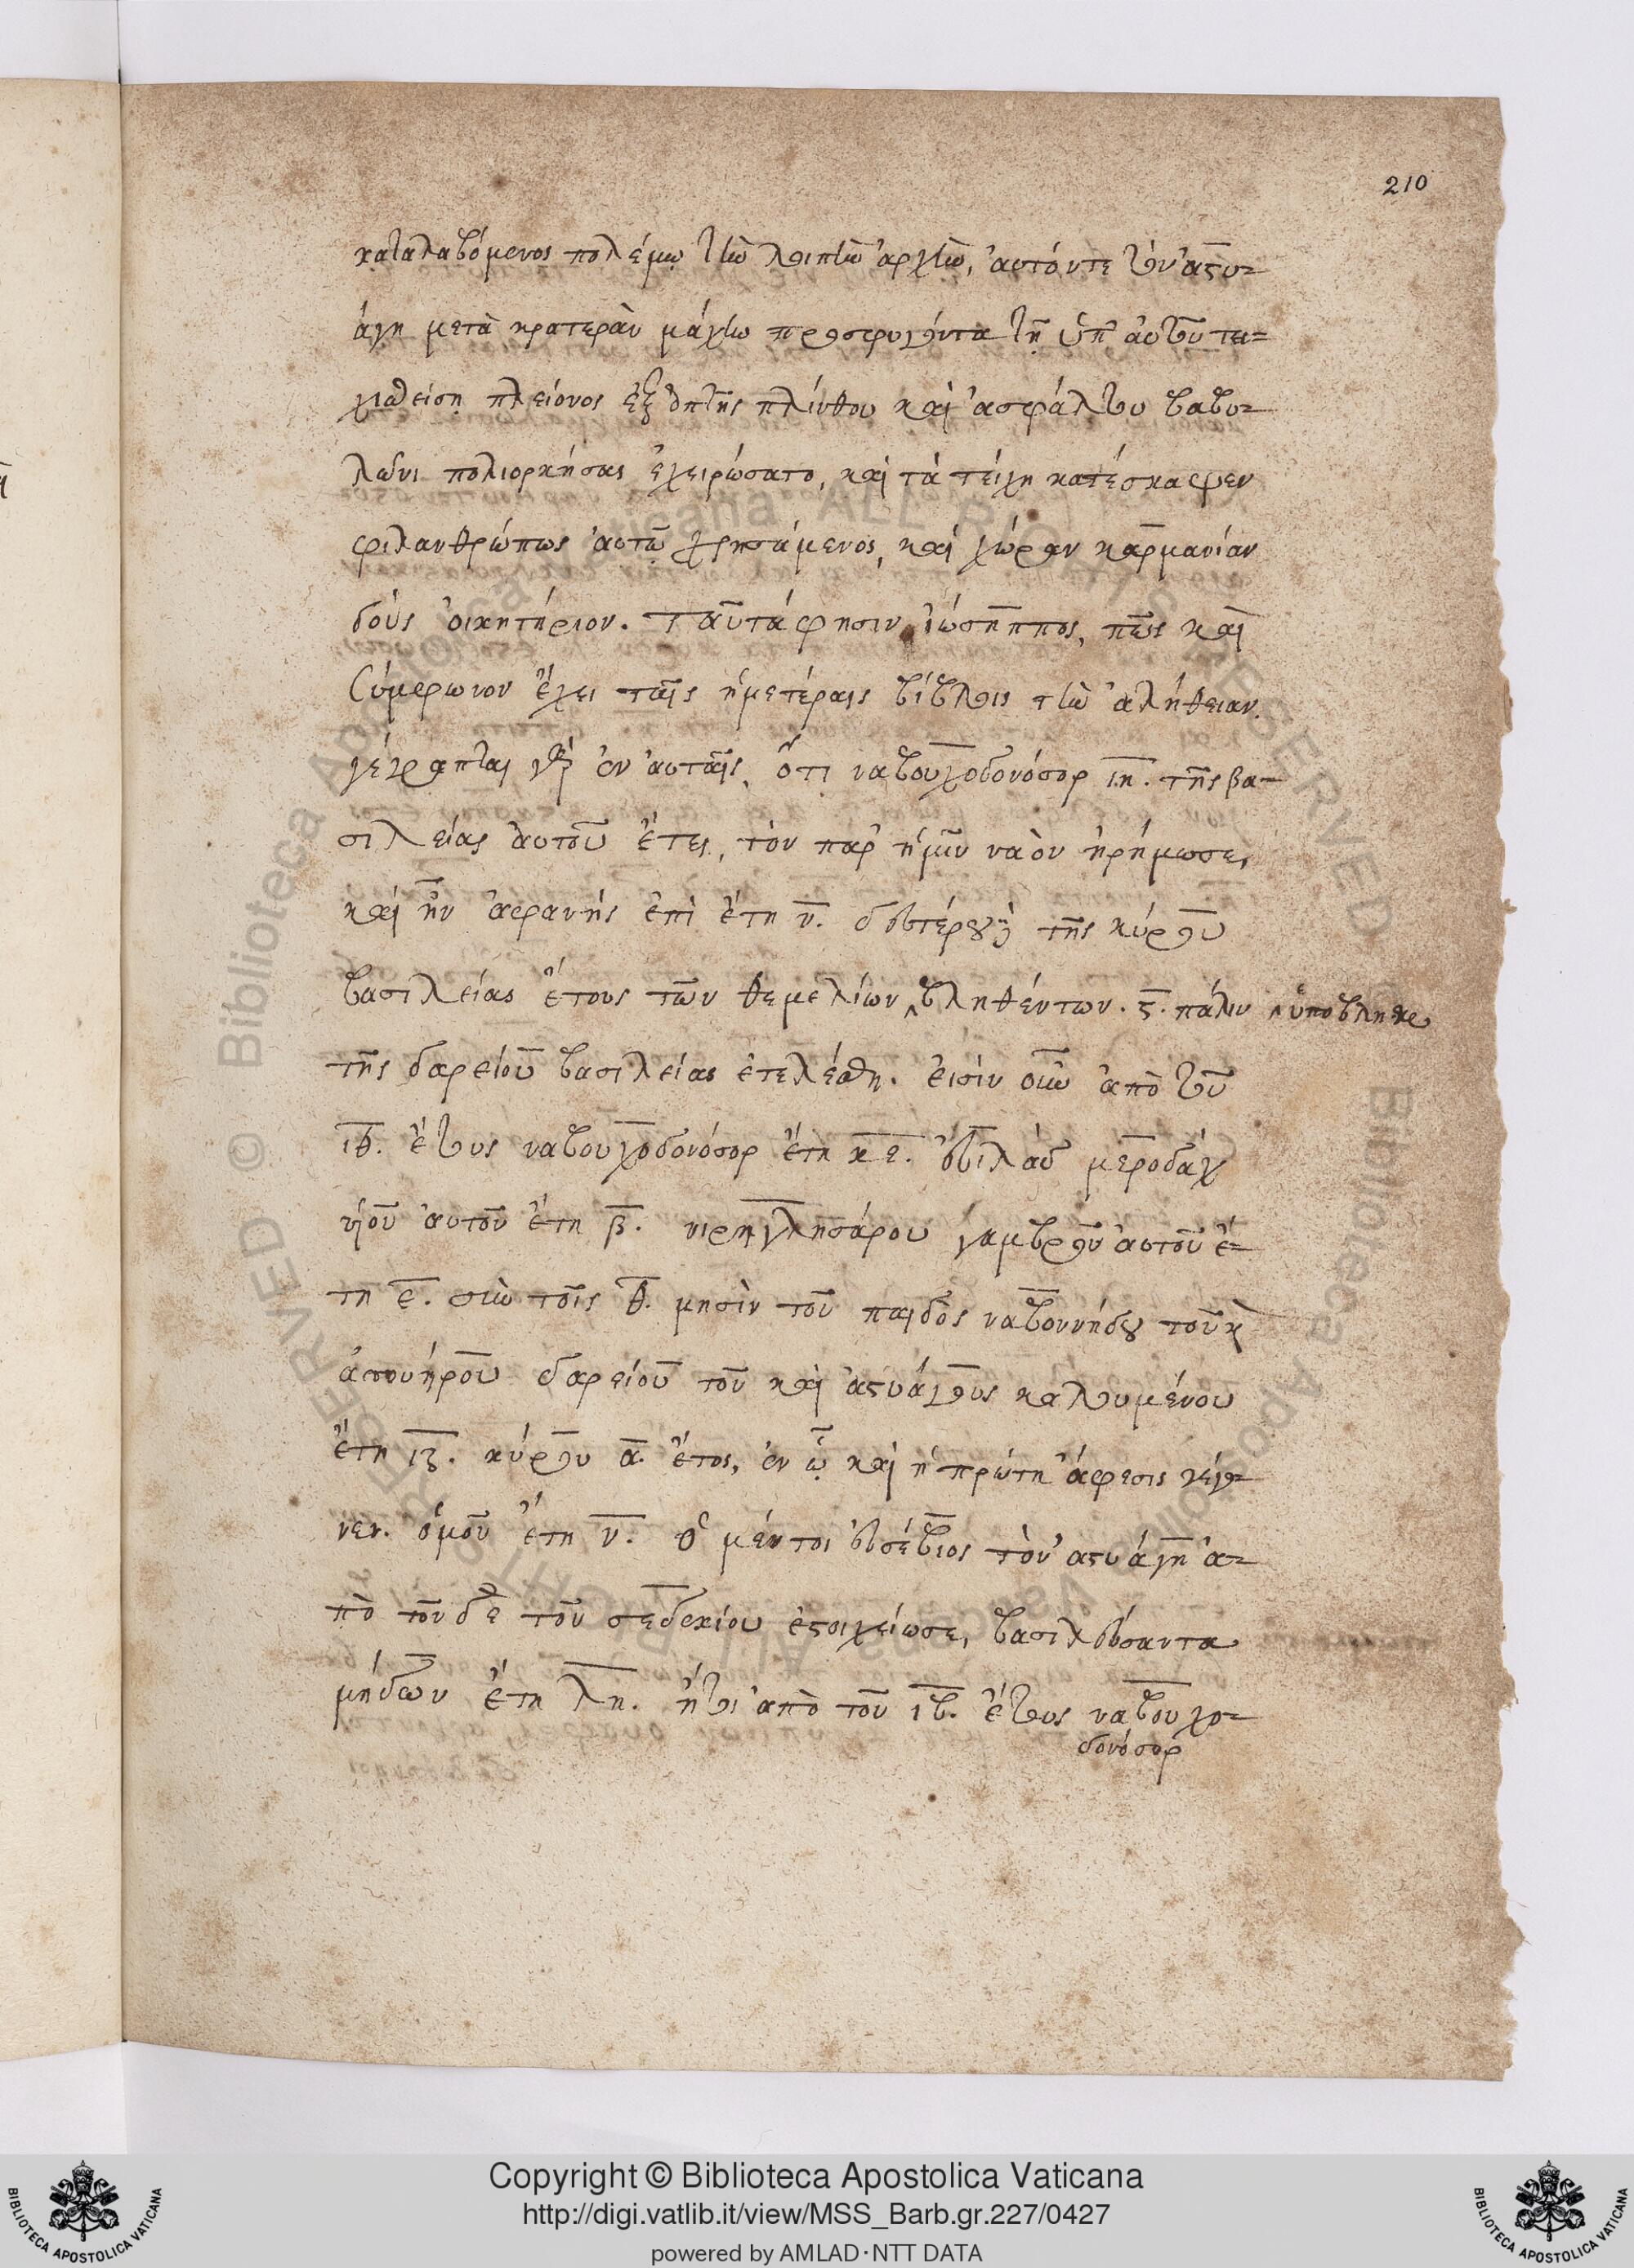 210
καταλαβόμενος πολέμῳ τὴν λοιπὴν ἀρχὴν, αὐτόν τε τὸν ἀστυ-
άγη μετὰ κρατερὰν μάχην προσφυγόντα τῇ ὑπ' αὐτοῦ τει-
χισθείσῃ πλείονος ἐξ ὀπτῆς πλίνθου καὶ ἀσφάλτου βαβυ-
λῶνι πολιορκήσας ἐχειρώσατο, καὶ τὰ τείχη κατέσκαψεν
φιλανθρώπως αὐτῷ χρησάμενος, καὶ χώραν καρμανίαν
δοὺς οἰκητήριον. Ταῦτά φησιν ἰώσηππος, πῶς καὶ
σύμφωνον ἔχει ταῖς ἡμετέραις βίβλοις τὴν ἀλήθειαν.
γέγραπται γὰρ ἐν αὐταῖς, ὅτι ναβουχοδονόσορ ιη. τῆς βα-
σιλείας αὐτοῦ ἔτει, τὸν παρ' ἡμῖν ναὸν ἠρήμωσε,
καὶ ἦν ἀφανὴς ἐπὶ ἔτη ν. δευτέρου δὲ τῆς κύρου
βασιλείας ἔτους τῶν θεμελίων βληθέντων. ς. πάλιν ὑποβληθε
τῆς δαρείου βασιλείας ἐτελέσθη. εἰσὶν οὖν ἀπὸ τοῦ
ιθ. ἔτους ναβουχοδονόσορ ἔτη κε. εὐιλὰδ μεροδὰχ
υἱοῦ αὐτοῦ ἔτη β. νιρηγλησάρου γαμβροῦ αὐτοῦ ἔ-
τη ε. σὺν τοῖς θ. μησὶν τοῦ παιδὸς ναβοννήδου τοῦ κ
ἀσουήρου δαρείου τοῦ καὶ ἀστυάγους καλουμένου
ἔτη ιζ. κύρου α. ἔτος, ἐν ᾧ καὶ ἡ πρώτη ἄφεσις γέγο-
νεν. ὁμοῦ ἔτη ν. ὁ μέντοι εὐσέβιος τὸν ἀστυάγη ἀ-
πὸ τοῦδε τοῦ σεδεκίου ἐστοιχείωσε, βασιλεύσαντα
μήδων ἔτη λη. ἤτοι ἀπὸ τοῦ ιβ. ἔτους ναβουχο-
δονόσορ
Copyright © Biblioteca Apostolica Vaticana
http://digi.vatlib.it/view/MSS_Barb.gr.227/0427
powered by AMLAD·NTT DATA